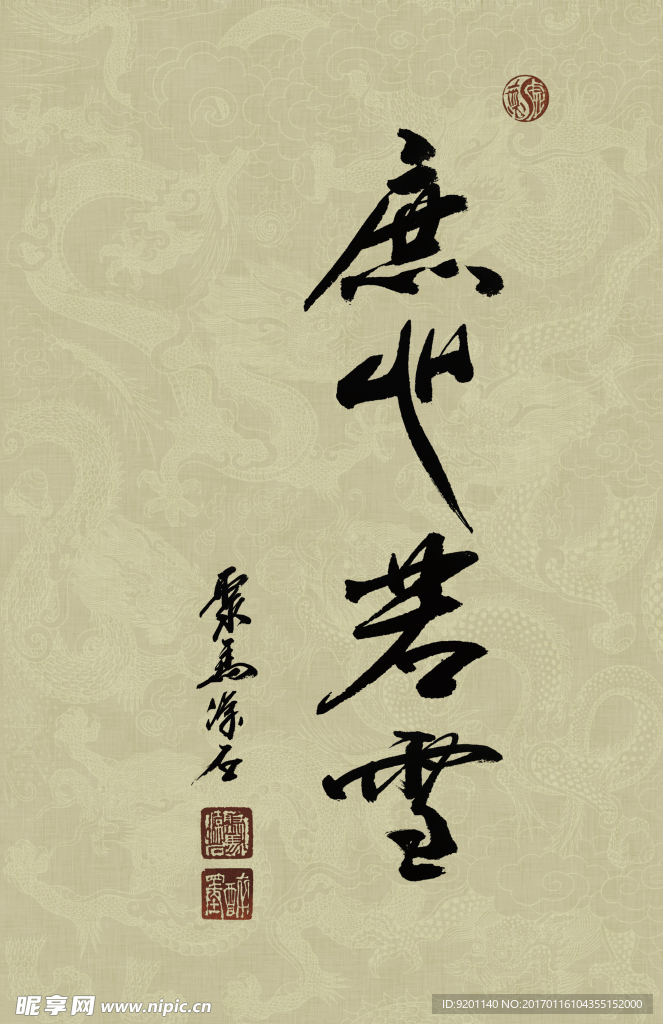 庶
若
雪
聚馬涤石
昵享网 www.nipic.cn
ID:9201140 NO:20170116104355152000